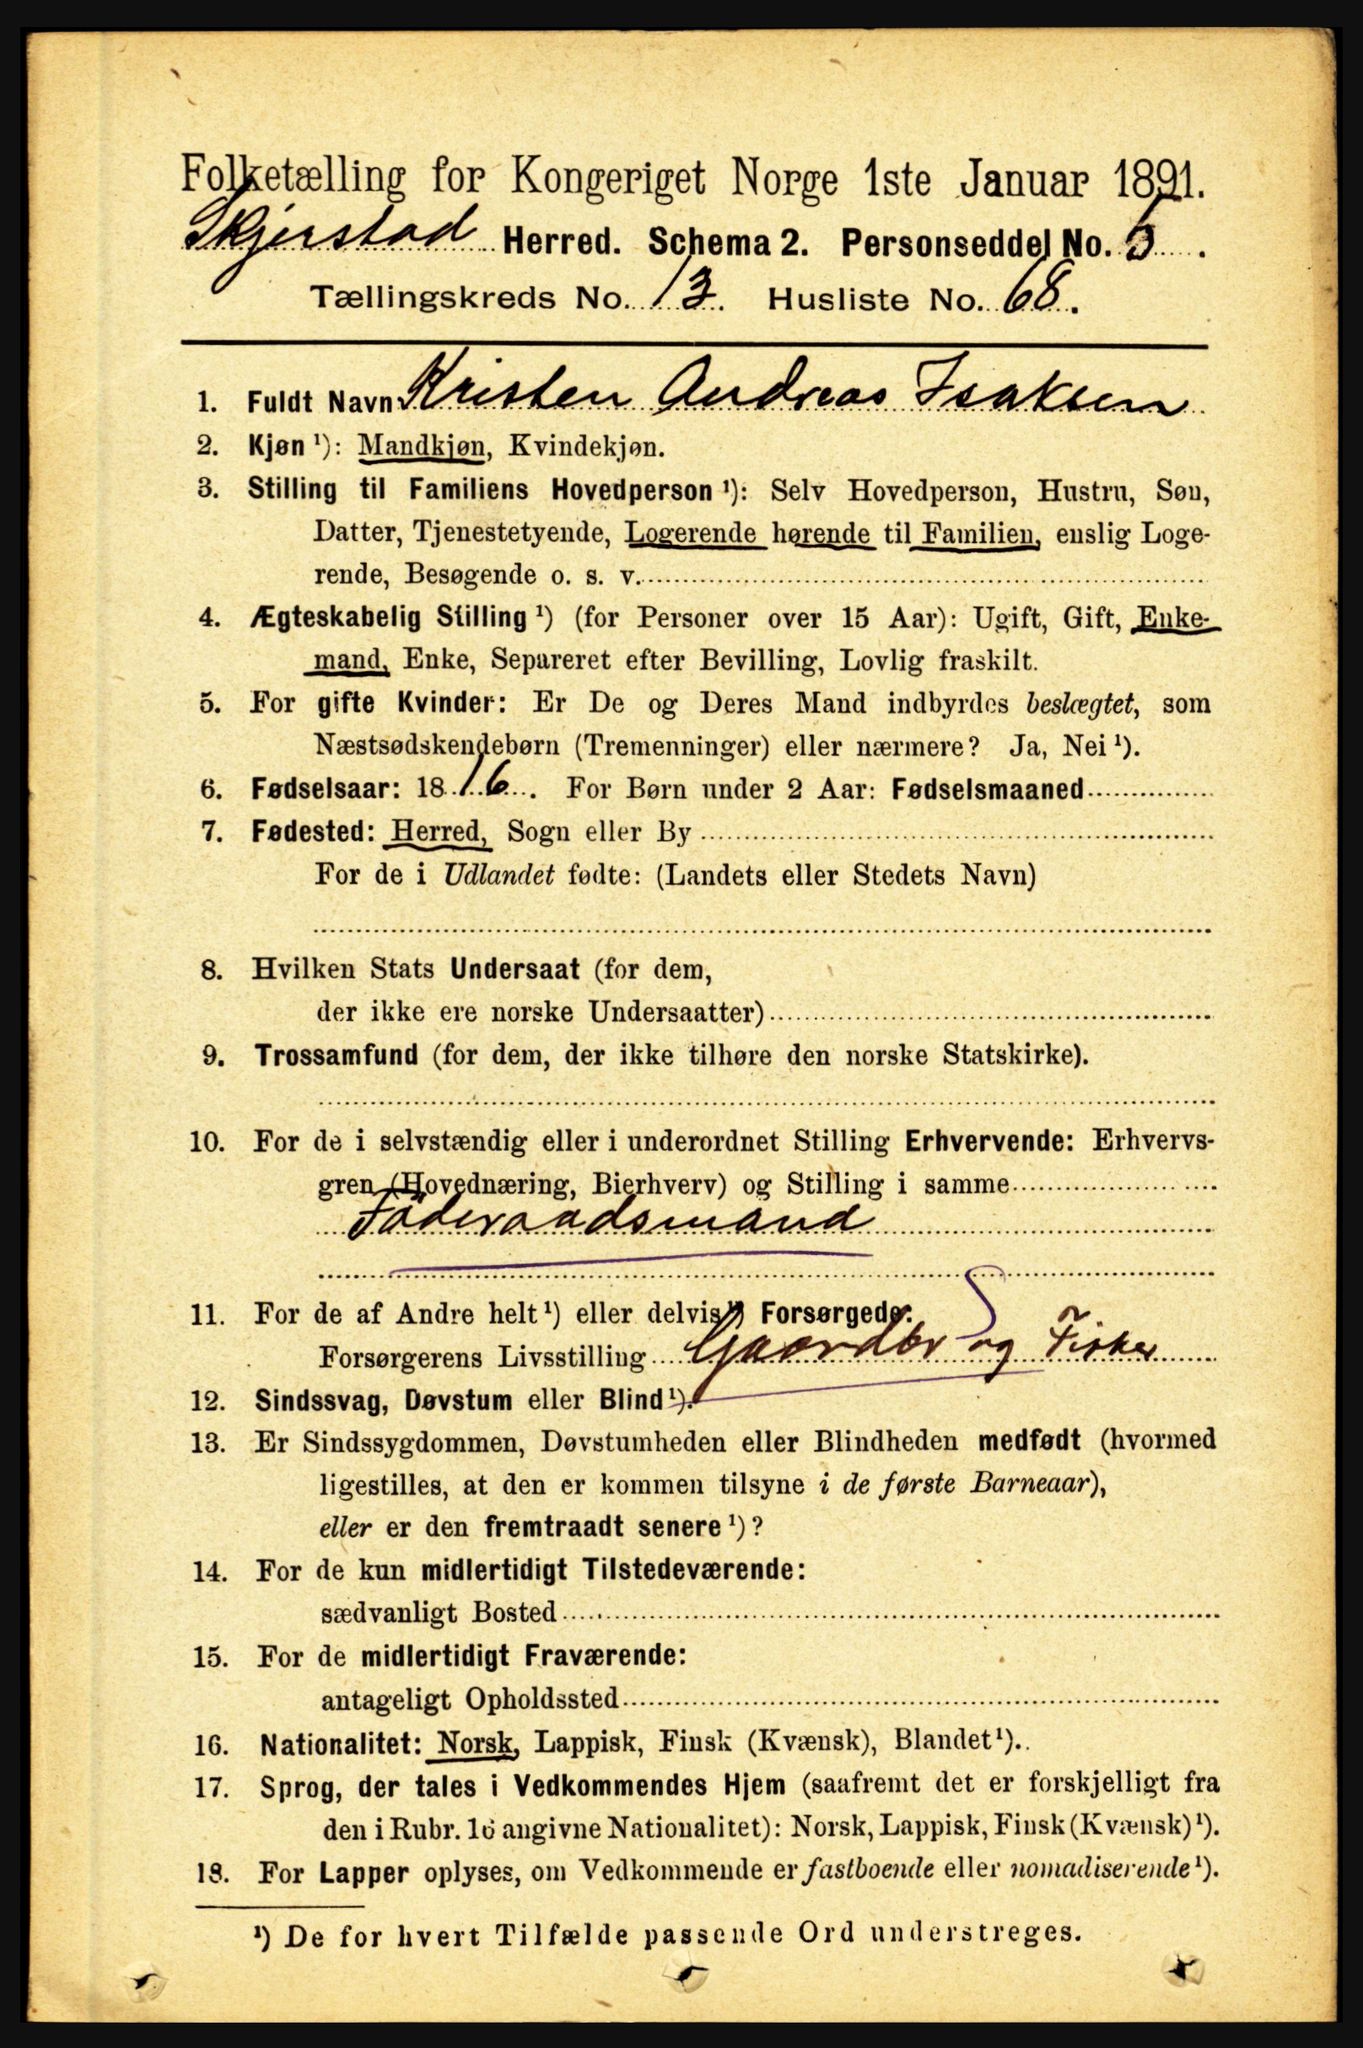 Folketælling for Kongeriget Norge 1ste Januar 1891.
Skjerstad Herred. Schema 2. Personseddel No. 5.
Tællingskreds No. 13. Husliste No. 68.
1. Fuldt Navn Kristen Andreas Isaksen
2. Kjøn ¹): Mandkjøn, Kvindekjøn.
3. Stilling til Familiens Hovedperson ¹): Selv Hovedperson, Hustru, Søn,
Datter, Tjenestetyende, Logerende hørende til Familien, enslig Loge-
rende, Besøgende o. s. v.
4. Ægteskabelig Stilling ¹) (for Personer over 15 Aar): Ugift, Gift, Enke-
mand, Enke, Separeret efter Bevilling, Lovlig fraskilt.
5. For gifte Kvinder: Er De og Deres Mand indbyrdes beslægtet, som
Næstsødskendebørn (Tremenninger) eller nærmere? Ja, Nei ¹).
6. Fødselsaar: 1816. For Børn under 2 Aar: Fødselsmaaned
7. Fødested: Herred, Sogn eller By
For de i Udlandet fødte: (Landets eller Stedets Navn)
8. Hvilken Stats Undersaat (for dem,
der ikke ere norske Undersaatter)
9. Trossamfund (for dem, der ikke tilhøre den norske Statskirke).
10. For de i selvstændig eller i underordnet Stilling Erhvervende: Erhvervs-
gren (Hovednæring, Bierhverv) og Stilling i samme
Föderaadsmand
11. For de af Andre helt ¹) eller delvis ¹) Forsørgede:
Forsørgerens Livsstilling Gaardbr og Fisker
12. Sindssvag, Døvstum eller Blind ¹).
13. Er Sindssygdommen, Døvstumheden eller Blindheden medfødt (hvormed
ligestilles, at den er kommen tilsyne i de første Barneaar),
eller er den fremtraadt senere ¹)?
14. For de kun midlertidigt Tilstedeværende:
sædvanligt Bosted
15. For de midlertidigt Fraværende:
antageligt Opholdssted
16. Nationalitet: Norsk, Lappisk, Finsk (Kvænsk), Blandet ¹).
17. Sprog, der tales i Vedkommendes Hjem (saafremt det er forskjelligt fra
den i Rubr. 16 angivne Nationalitet): Norsk, Lappisk, Finsk (Kvænsk) ¹).
18. For Lapper oplyses, om Vedkommende er fastboende eller nomadiserende ¹).
¹) De for hvert Tilfælde passende Ord understreges.